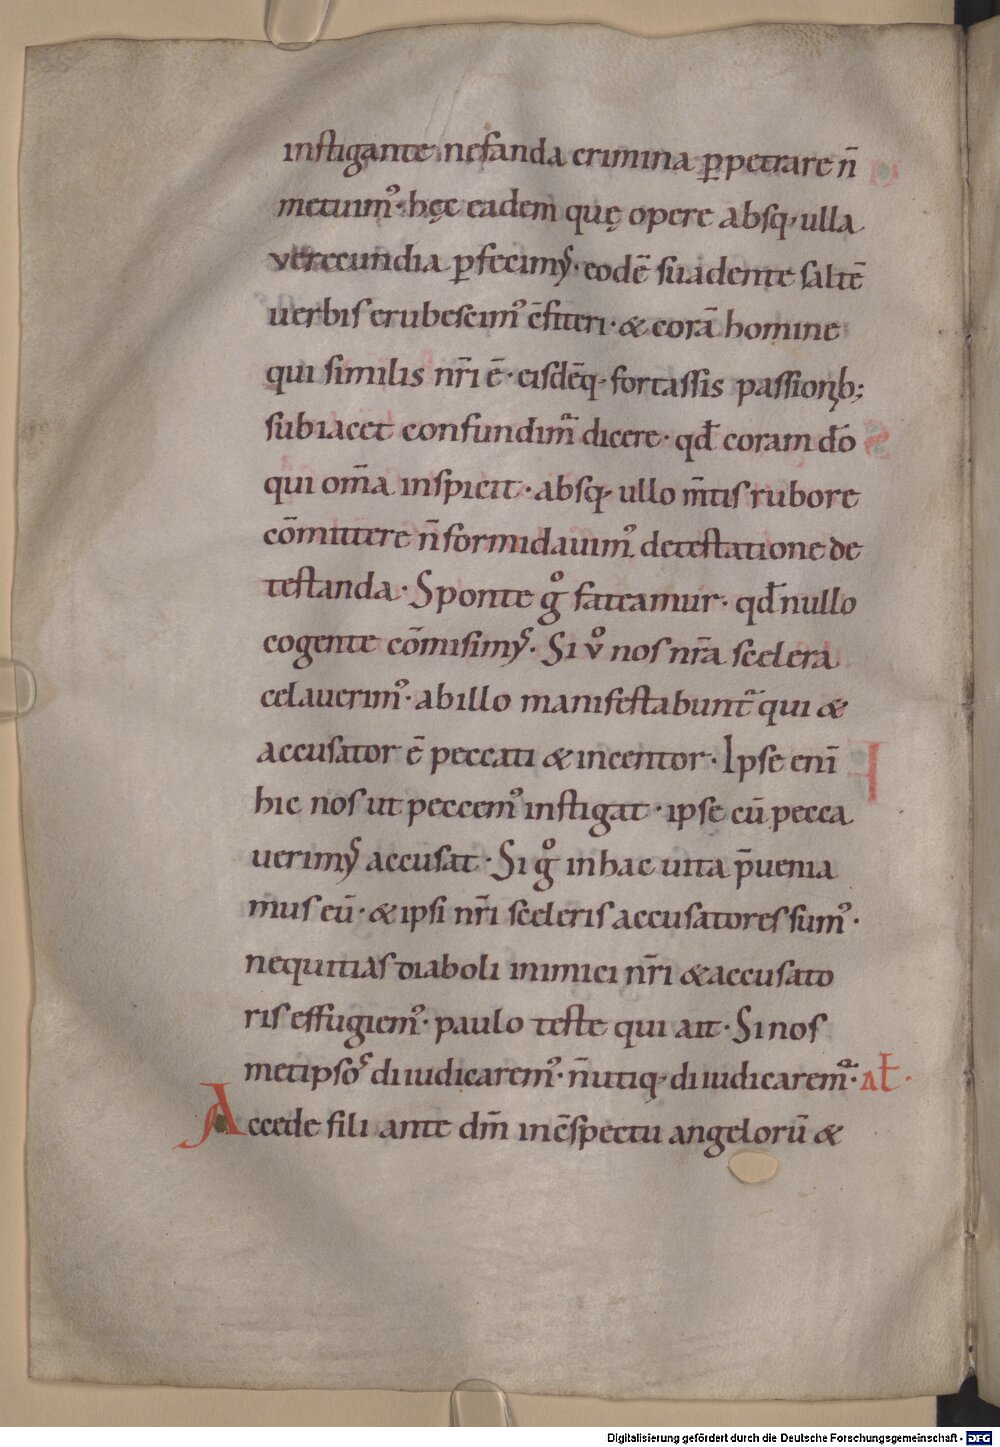 instigante nefanda crimina ꝑpetrare n̄
metuimꝰ· hęc eadem quę opere absq; ulla
verecundia ꝑfecimꝰ· eodē suadente saltē
uerbis erubescimꝰ c̄fiteri· & corā homine
qui similis nr̄i ē· eisdēq; fortassis passionib;
subiacet confundimᷓ dicere· qđ coram dō
qui om̄a inspicit· absq; ullo m̄tis rubore
cōmittere n̄ formidauimꝰ detestatione de
testanda· Sponte gͦ fateamur· qđ nullo
cogente cōmisimꝰ. Si vͦ nos nr̄a scelera
celauerimꝰ· ab illo manifestabunt᷑ qui &
accusator ē peccati & incentor· Ipse enī
hic nos ut peccemꝰ instigat· ipse cū pecca
uerimꝰ accusat· Si gͦ in hac uita p̄uenia
mus eū· & ipsi nr̄i sceleris accusatores sumꝰ·
nequitias diaboli inimici nr̄i & accusato
ris effugiemꝰ· paulo teste qui ait· Si nos
metipsos diiudicaremꝰ· n̄ utiq; diiudicaremᷓ· ał·
Accede fili ante dm̄ in c̄spectu angelorū &
Digitalisierung gefördert durch die Deutsche Forschungsgemeinschaft - DFG